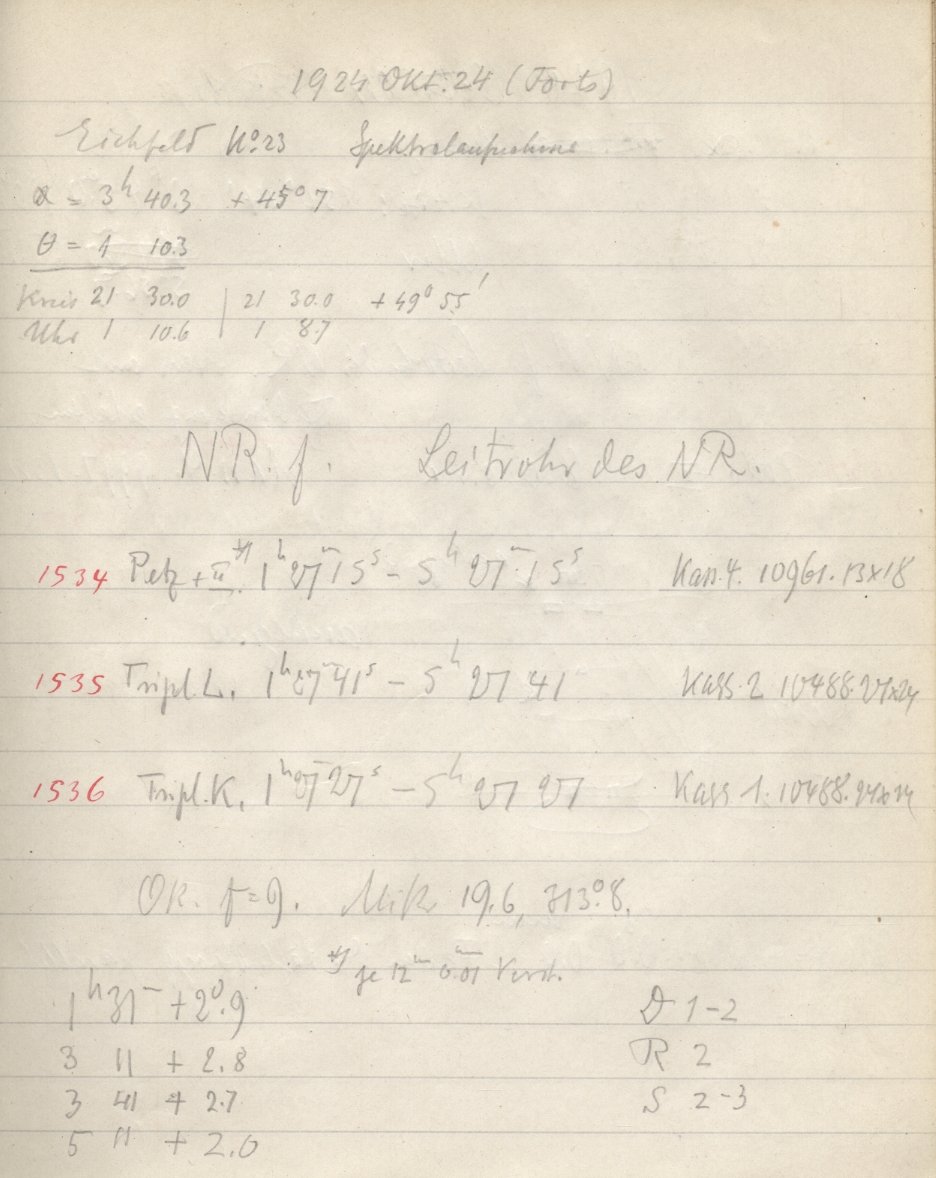 1924 Okt. 24 (Forts)
Eichfeld No 23 Spektralaufnahme
α = 3h 40.3 + 45° 7
θ = 1 10.3
Kreis 21 30.0 | 21 30.0 + 49° 55'
Uhr 1 10.6 | 1 8.7
NR. f. Leitrohr des NR.
1534 Petz + II *) 1h 27m 15s - 5h 27m 15s Kass. 4. 10961. 13x18
1535 Tripl. L. 1h 27m 41s - 5h 27 41 Kass. 2 10488. 24x24
1536 Tripl. K. 1h 27m 27s - 5h 27 27 Kass 1. 10488. 24x24
Ok. f = 9. Mikr 19.6, 313°.8.
*) je 12m 0.01 Verst.
1h 31m + 2°.9 D 1-2
3 11 + 2.8 R 2
3 41 + 2.7 S 2-3
5 11 + 2.0